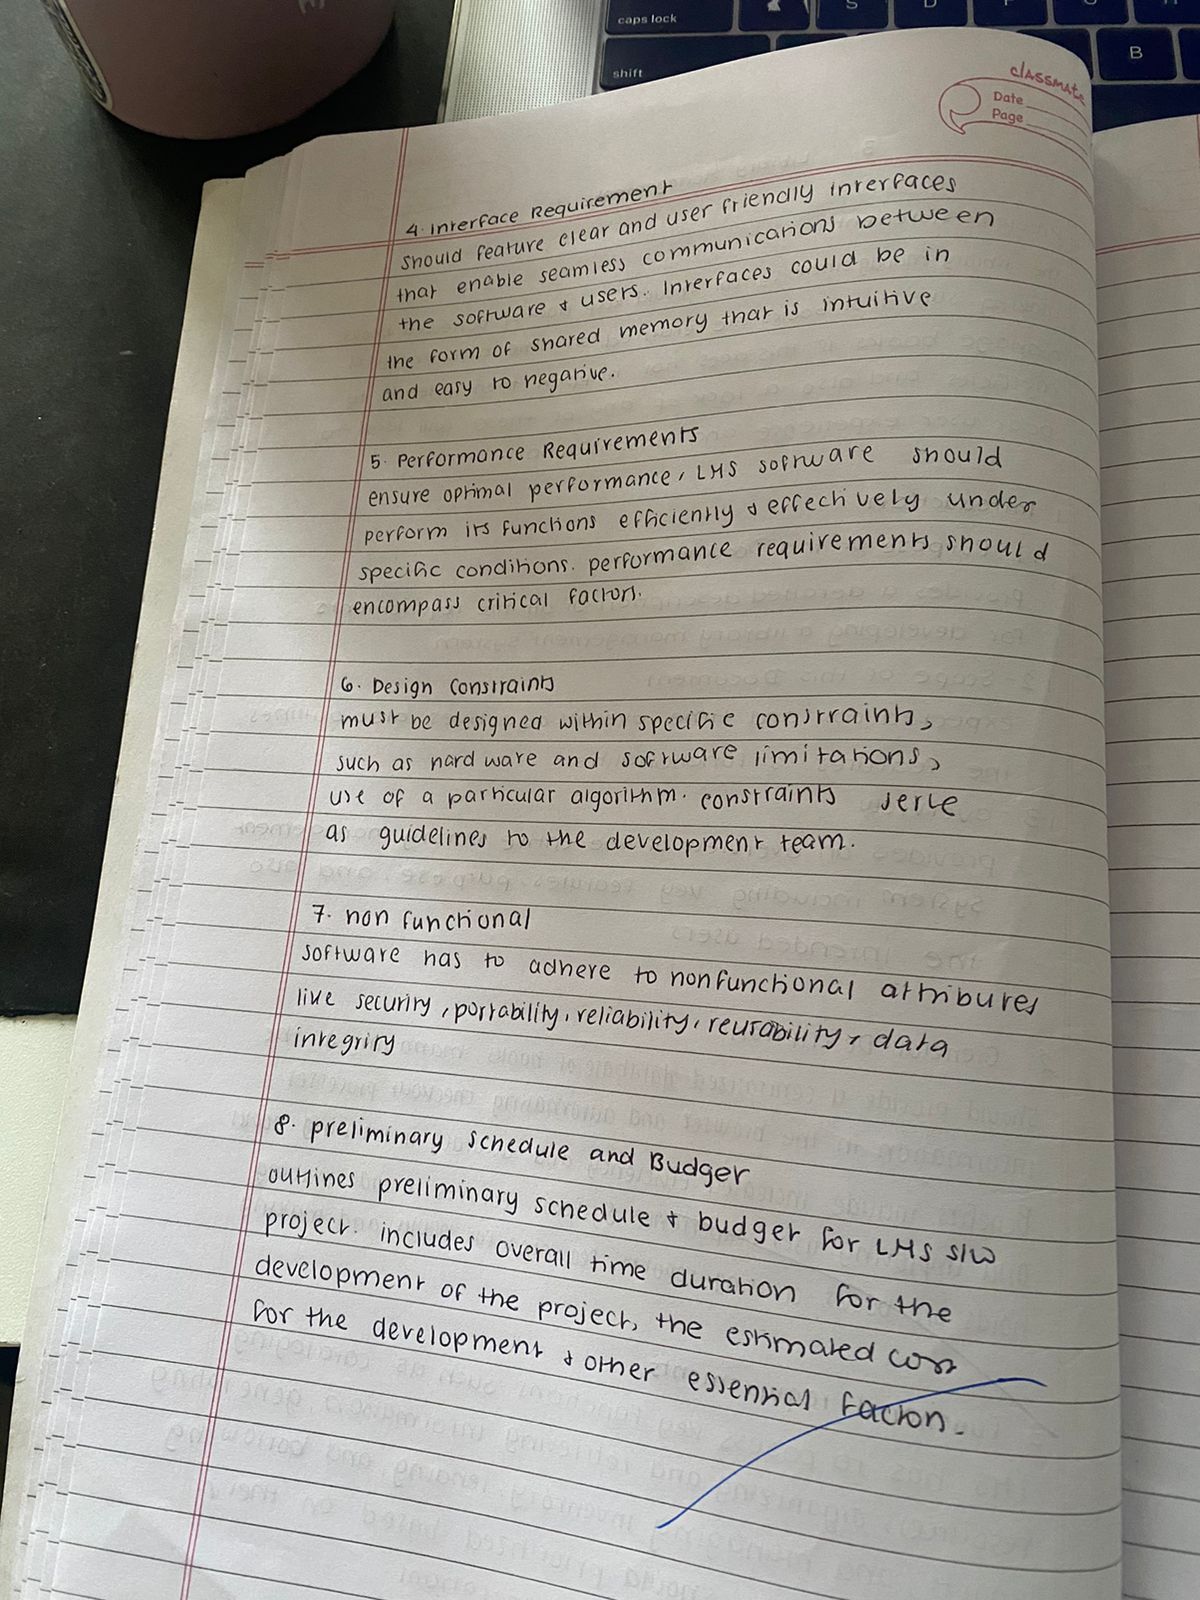 caps lock
shift
S
D
F
G
H
B
classmate
Date
Page
4. Interface Requirement
should feature clear and user friendly interfaces
that enable seamless communications between
the software & users. Interfaces could be in
the form of shared memory that is intuitive
and easy to negative.
5. Performance Requirements
ensure optimal performance, LMS software should
perform its functions efficiently & effectively under
specific conditions. performance requirements should
encompass critical factors.
6. Design Constraints
must be designed within specific constraints,
such as hardware and software limitations,
use of a particular algorithm. constraints serve
as guidelines to the development team.
7. non functional
software has to adhere to nonfunctional attributes
like security, portability, reliability, reusability, data
integrity
8. preliminary schedule and Budget
outlines preliminary schedule & budget for LMS S/W
project. includes overall time duration for the
development of the project, the estimated cost
for the development & other essential factors.